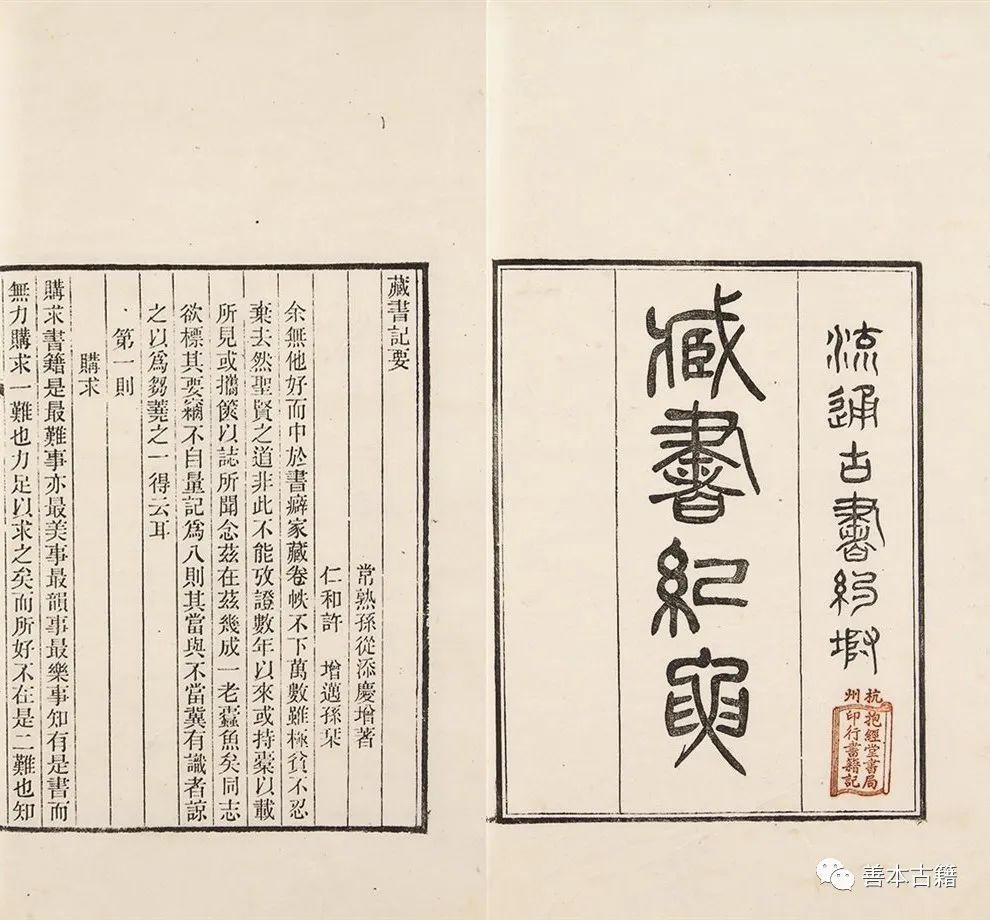 流通古書約坿
臧書紀要
杭州
抱經堂書局
印行書籍記
藏書記要
常熟孫從添慶增著
仁和許 增邁孫栞
余無他好而中於書癖家藏卷帙不下萬數雖極貧不忍
棄去然聖賢之道非此不能攷證數年以來或持橐以載
所見或攜篋以誌所聞念茲在茲幾成一老蠹魚矣同志
欲標其要竊不自量記爲八則其當與不當冀有識者諒
之以爲芻蕘之一得云耳
第一則
購求
購求書籍是最難事亦最美事最韻事最樂事知有是書而
無力購求一難也力足以求之矣而所好不在是二難也知
善本古籍